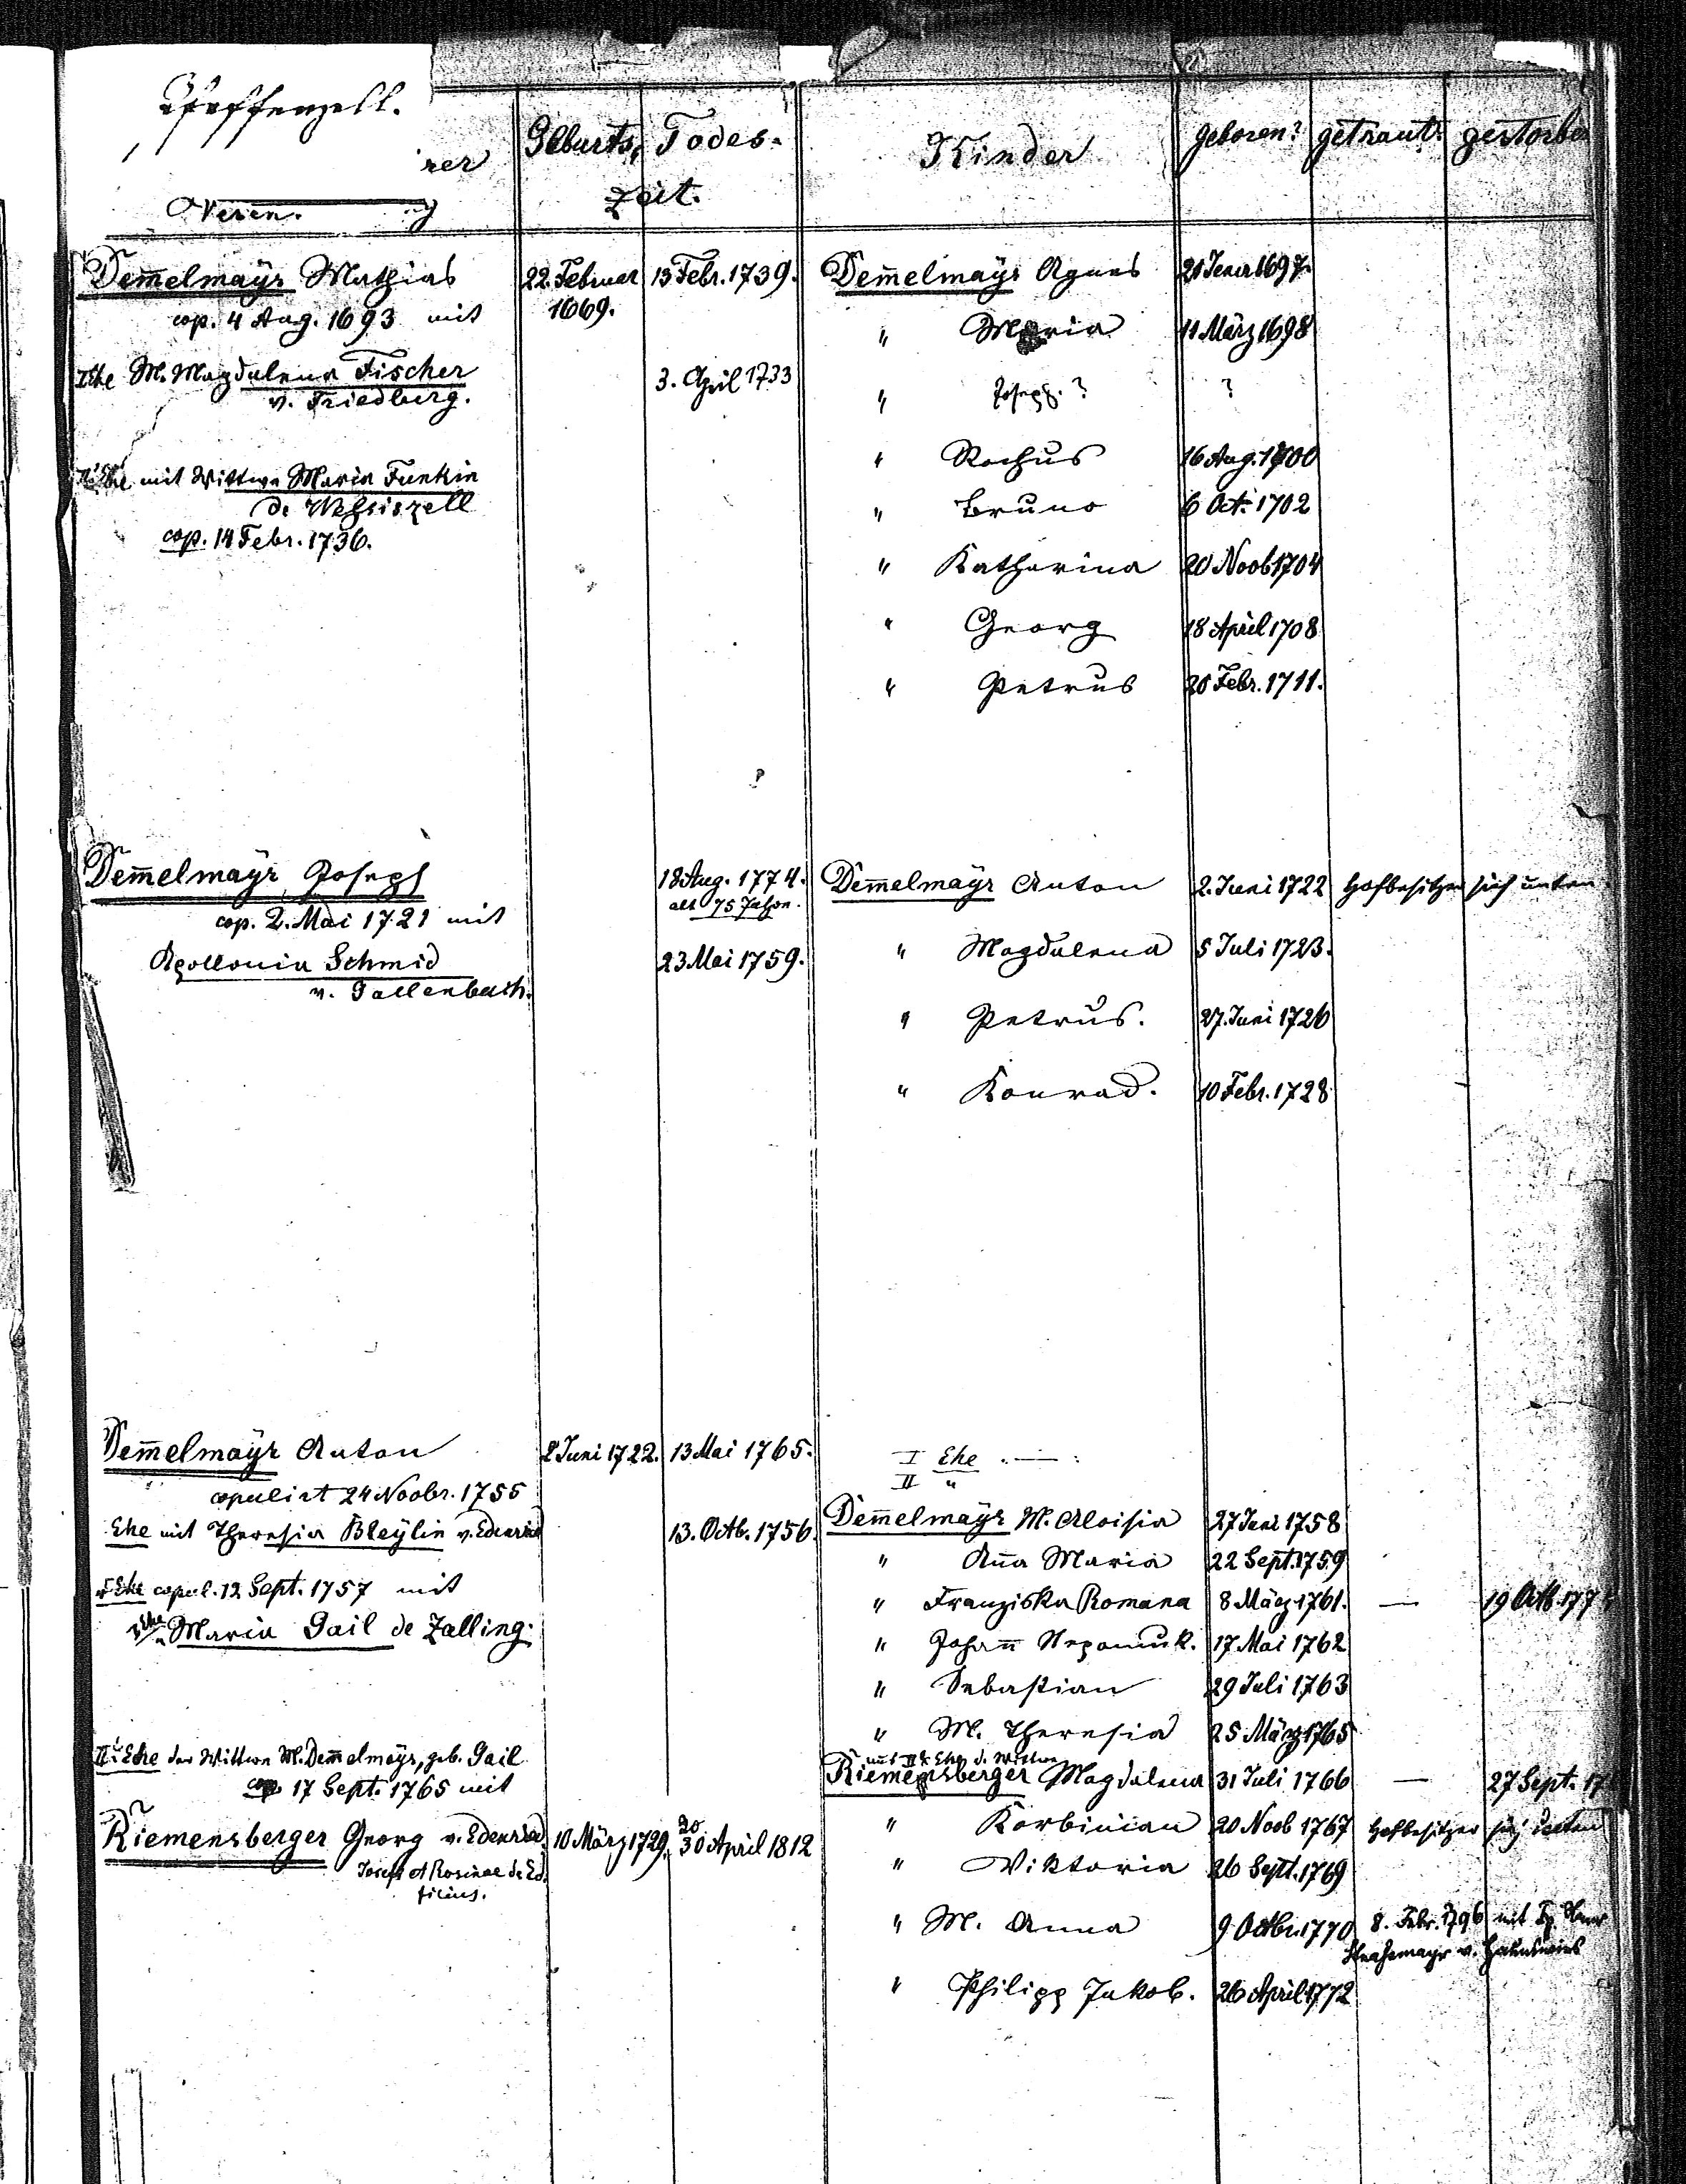 Geburts, Todes-
Zeit.
Kinder
geboren? getraut? gestorben
Dem̄elmaÿr Mathias 22. Februar 13 Febr. 1739. Dem̄elmaÿr Agnes 21 Jener 1697.
cop. 4 Aug. 1693 mit 1669.
" Maria 11 März 1698
I Ehe M. Magdalena Fischer 3. April 1733
v. Friedberg.
" Joseph. ? ?
" Rochus 16 Aug. 1700
II. Ehe mit Wittwe Maria Funkin
" Bruno 6 Oct. 1702
cop. 14 Febr. 1736.
" Katharina 20 Novb 1704
" Georg 18 April 1708
" Petrus 20 Febr. 1711.
Dem̄elmaÿr Joseph 18 Aug. 1774. Dem̄elmaÿr Anton 2. Juni 1722 Hofbesitzer sieh unten
alt 75 Jahre.
cop. 2. Mai 1721 mit
Apollonia Schmid 23 Mai 1759. " Magdalena 5 Juli 1723.
v. Tallenbach.
" Petrus. 27. Juni 1726
" Konrad. 10 Febr. 1728
Dem̄elmaÿr Anton 2 Juni 1722. 13 Mai 1765. I Ehe
II "
copulirt 24 Novbr. 1755
Ehe mit Theresia Bleÿlin v. Edenried 13. Octb. 1756. Dem̄elmaÿr M. Aloisia 27 Juni 1758
" An̄a Maria 22 Sept. 1759
Ehe copul. 12 Sept. 1757 mit
" Franziska Romana 8 März 1761. — 19 Octb. 177
Maria Gail de Zalling.
" Johan̄ Nepomuk. 17. Mai 1762
" Sebastian 29 Juli 1763
" M. Theresia 25. März 1765
II. Ehe der Wittwe M. Dem̄elmaÿr, geb. Gail
aus II Ehe d. Wittwe
Riemensberger Magdalena 31 Juli 1766 — 27 Sept. 17
cop 17 Sept. 1765 mit
" Korbinian 20 Novb 1767 Hofbesitzer sieh unten
Riemensberger Georg v. Edenried 10 März 1729. 20 30 April 1812
" Viktoria 26 Sept. 1769
Josephi et Rosinae de Ed.
filius.
" M. Anna 9 Octbr. 1770 8. Febr. 1796 mit
" Philipp Jakob. 26 April 1772